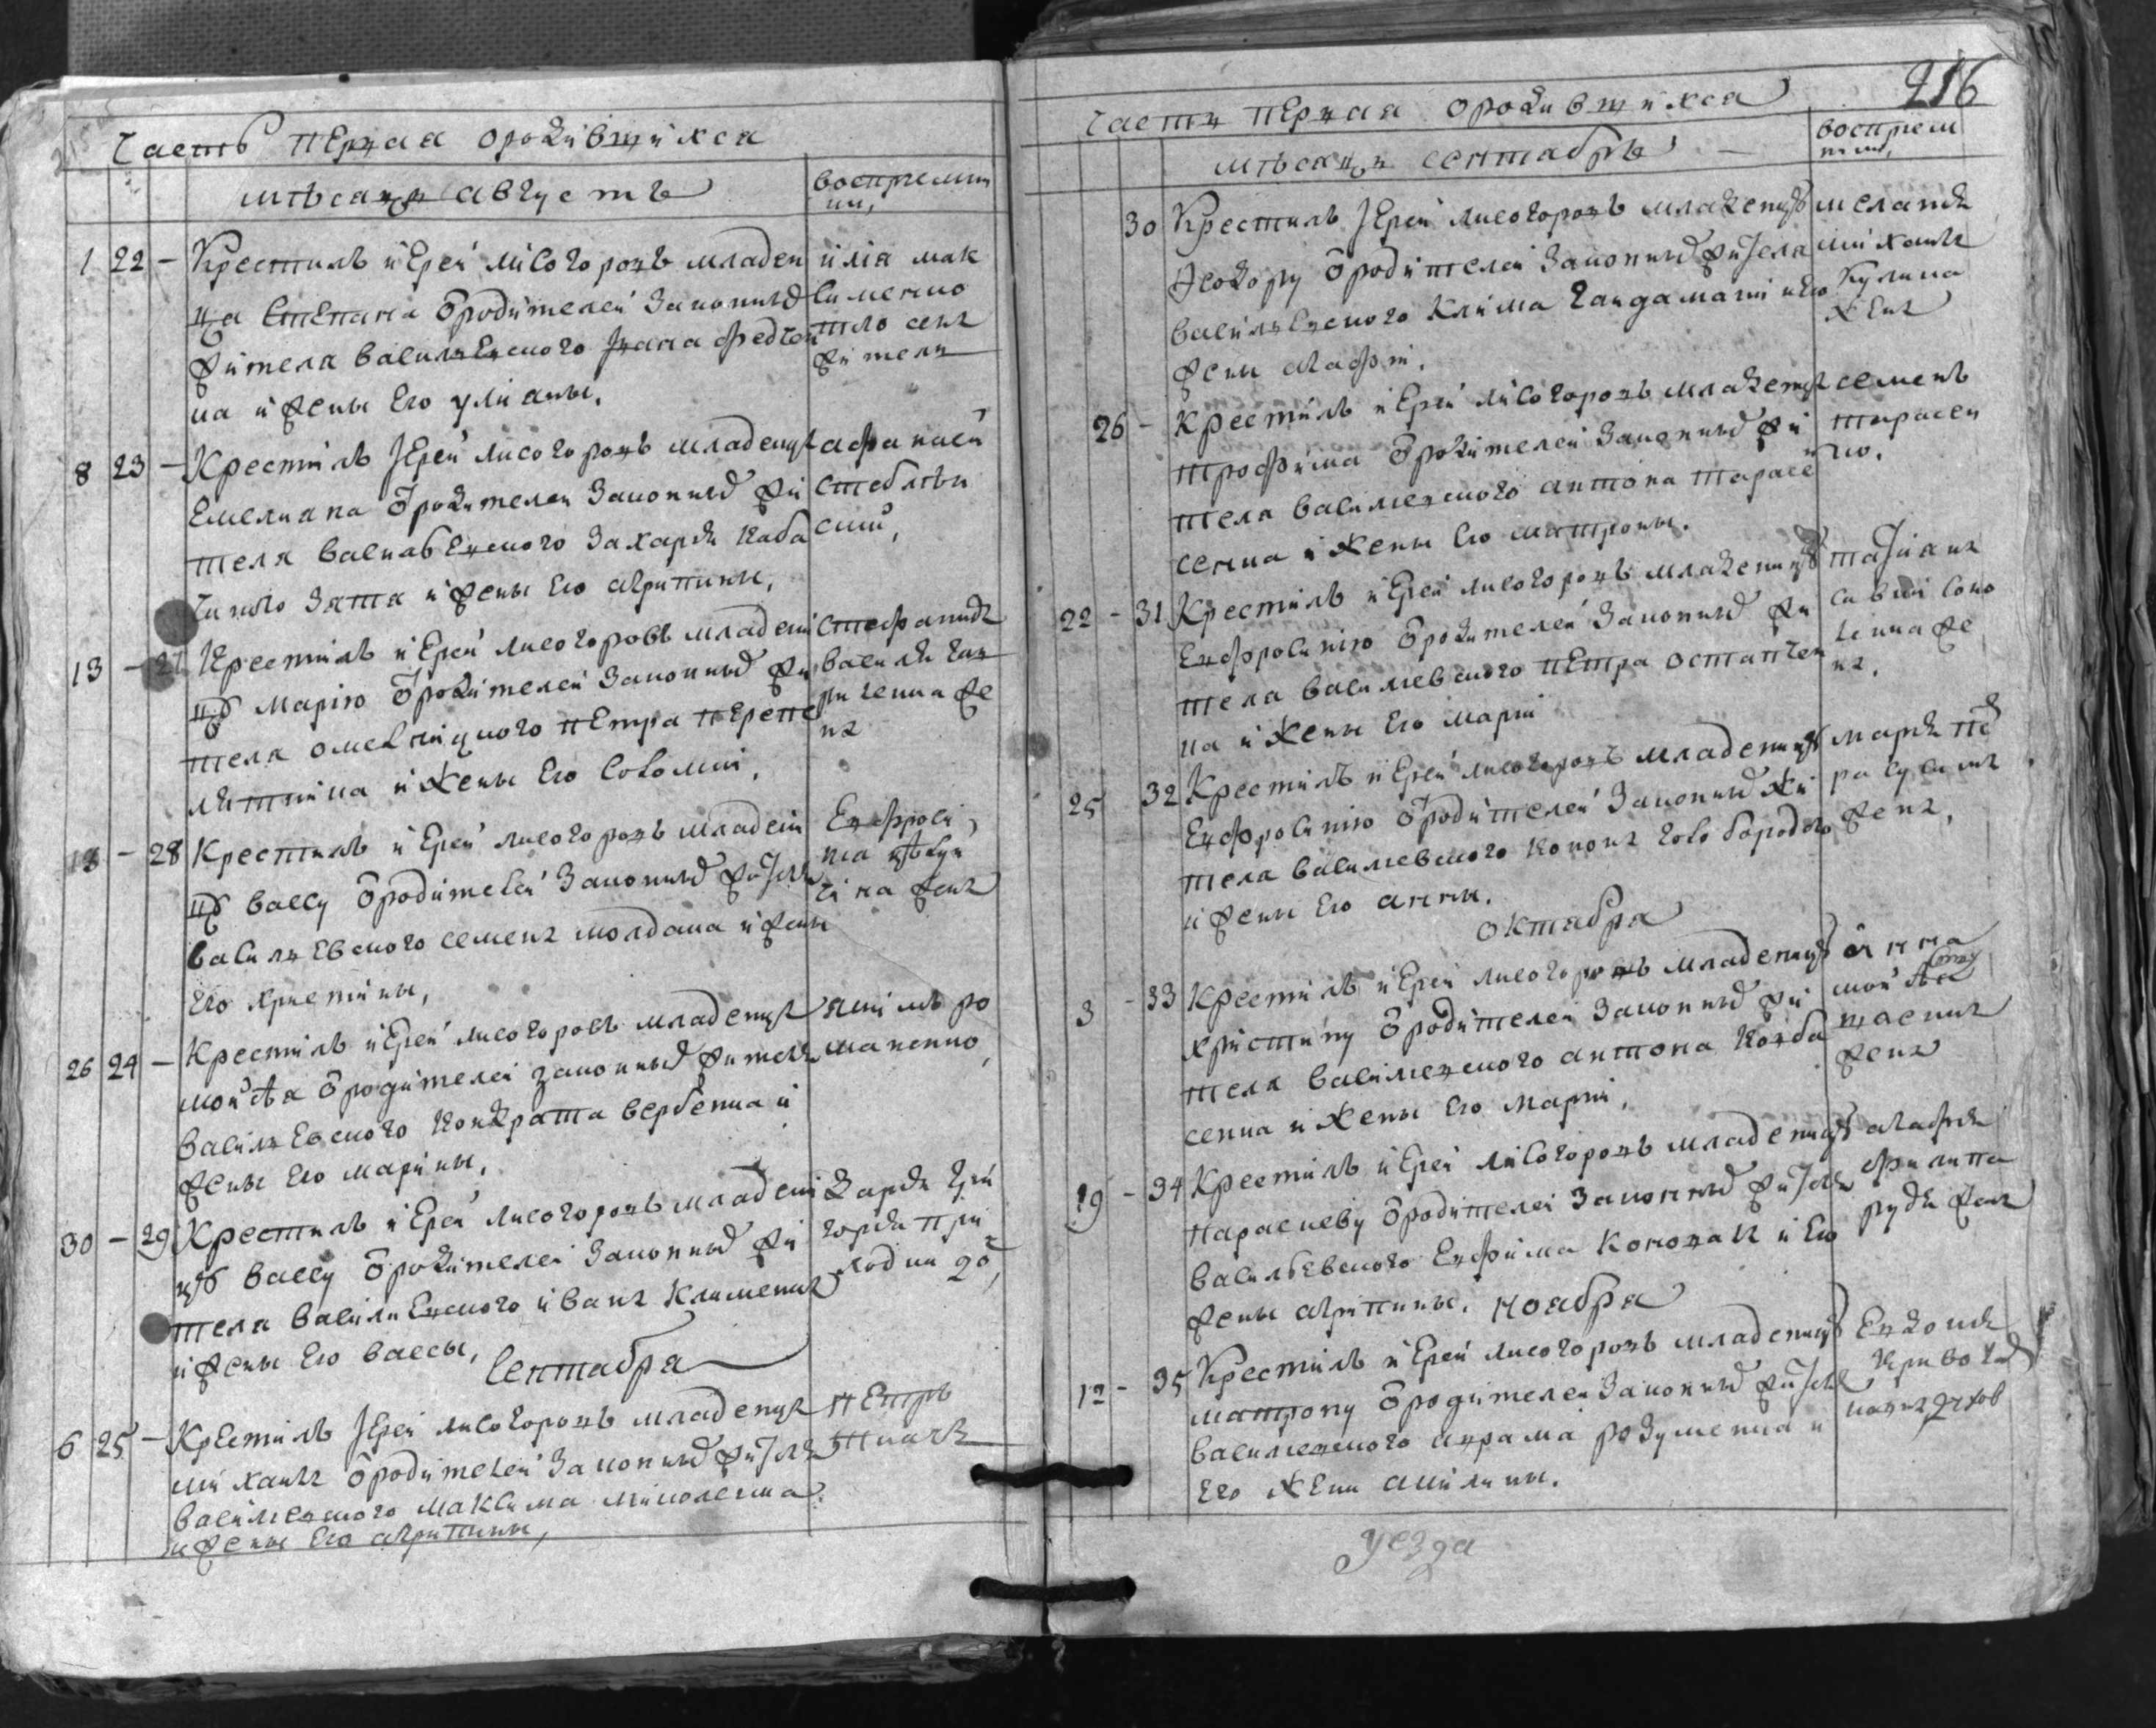 Часть первая о родившихся
мѣсяцъ августъ
воспремни
ки,
1 22 – Крестилъ иерей лисогоровъ младен
ца Степана ѿ родителей законных
жителя василевского Ивана федчен
ка и жены его улианы,
илія мак
сименко
тло сенк
жителк
8 23 – Крестилъ иерей лисогоровъ младенца
Емелиана ѿ родителей законных жи
теля василъевского захарія каба
зятя и жены его агрипины,
афанасій
стеблѣв
ский,
13 – 27 Крестилъ иерей лисогоровъ младен
цу марію ѿ родителей законных жи
теля петра перепе
и жены его соломіи,
стефанида
василія гав
риленка же
на
13 – 28 Крестилъ иерей лисогоровъ младен
цу вассу ѿ родителей законных жителя
василъевского семена молдана и жены
его христины,
Евфроси
ния
жена
26 24 – Крестилъ иерей лисогоровъ младенца
мойсѣя ѿ родителей законных жителя
василъевского кондрата вербенка и
жены его марины,
якимъ ро
маненко,
30 – 29 Крестилъ иерей лисогоровъ младен
цу вассу ѿ родителей законных жи
теля василиевского ивана клименка
и жены его вассы,
дарія гри
горія при
ходки до,
Сентабра
6 25 – Крестилъ иерей лисогоровъ младенца
михаила ѿ родителей законных жителя
василиевского максима миколенка
и жены его агрипины,
петръ
ткачъ
216
Части первая о родившихся
мѣсяцъ сентябрь –
воспрем
ники,
30 Крестилъ иерей лисогоровъ младенцу
Феодору ѿ родителей законных жителя
василъевского клима гайдамаки и его
жены агафіи.
меланія
михаила
кулика
жена
26 – Крестилъ иерей лисогоровъ младенца
трофима ѿ родителей законных жи
теля василиевского антона тарасе
сенка и жены его матроны.
семенъ
тарасен
ко.
22 – 31 Крестилъ иерей лисогоровъ младенцу
Евфросинію ѿ родителей законных жи
теля василиевского петра остапчен
ка и жены его маріи
таціана
савы соко
ленка же
на.
25 32 Крестилъ иерей лисогоровъ младенцу
Евфросинію ѿ родителей законных жи
теля василиевского конона голобородого
и жены его анны.
марія пет
ра
жена,
октабра
3 – 33 Крестилъ иерей лисогоровъ младенцу
христину ѿ родителей законных жи
теля василиевского антона ковба
сенка и жены его маріи,
анна
мойсѣя
жена
19 – 34 Крестилъ иерей лисогоровъ младенцу
параскеву ѿ родителей законных жителя
василъевского Евфима коновала и его
жены агрипины.
агафія
филиппа
рудя жена
ноабра
12 – 35 Крестилъ иерей лисогоровъ младенцу
матрону ѿ родителей законных жителя
василиевского аврама розуменка и
его жени акилины.
Евдокія
уезда